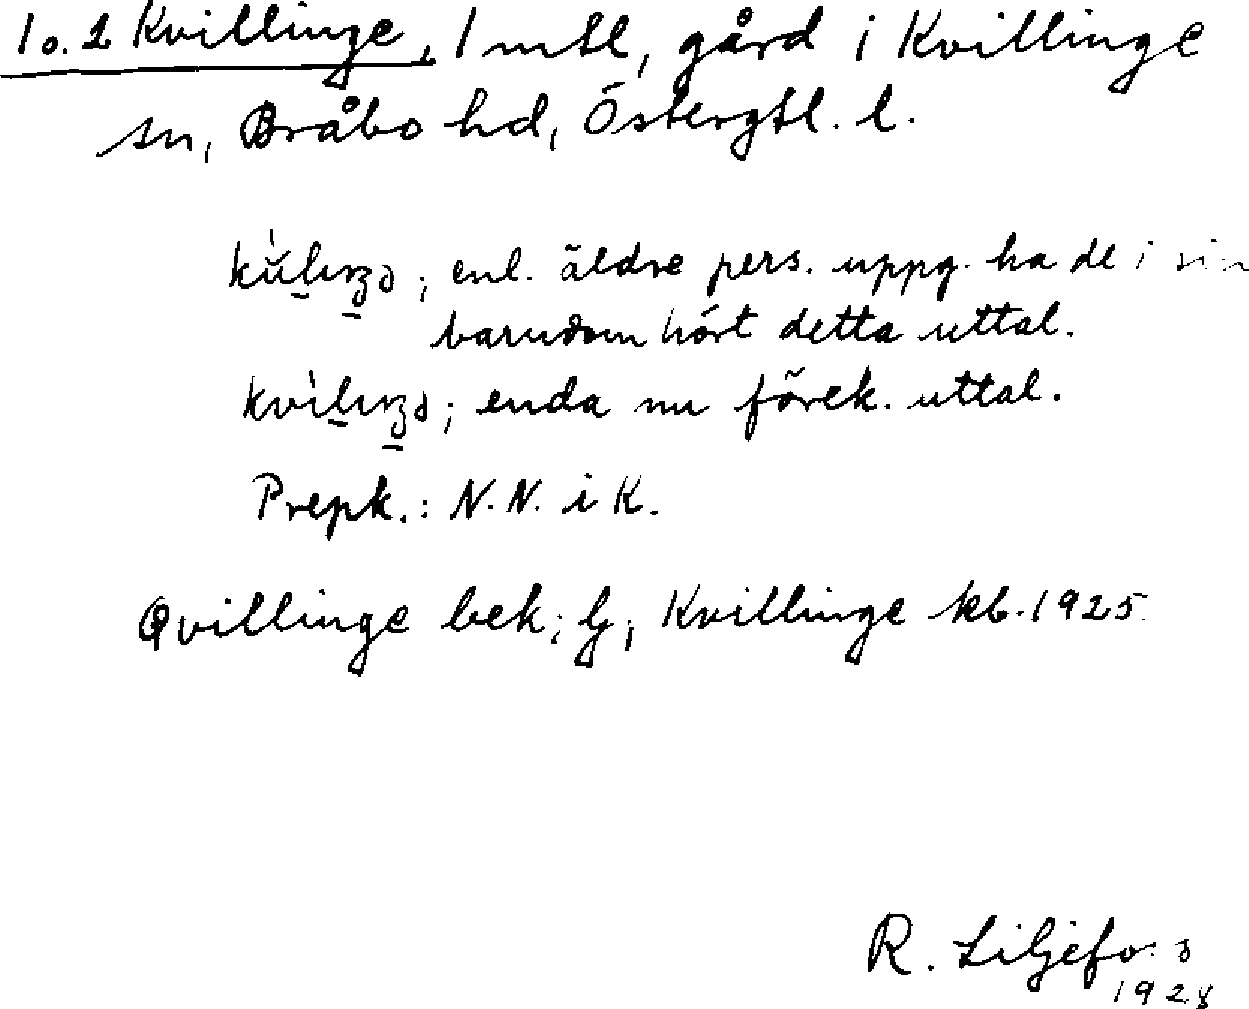 1 o. 2 Kvillinge, 1 mtl, gård i Kvillinge
sn, Bråbo hd, Östergtl. l.
enl. äldre pers. uppg. ha de i sin
barndom hört detta uttal.
enda nu förek. uttal.
Prepk.: N. N. i K.
Qvillinge bek; Kvillinge kb. 1925.
R. Liljefors
1928